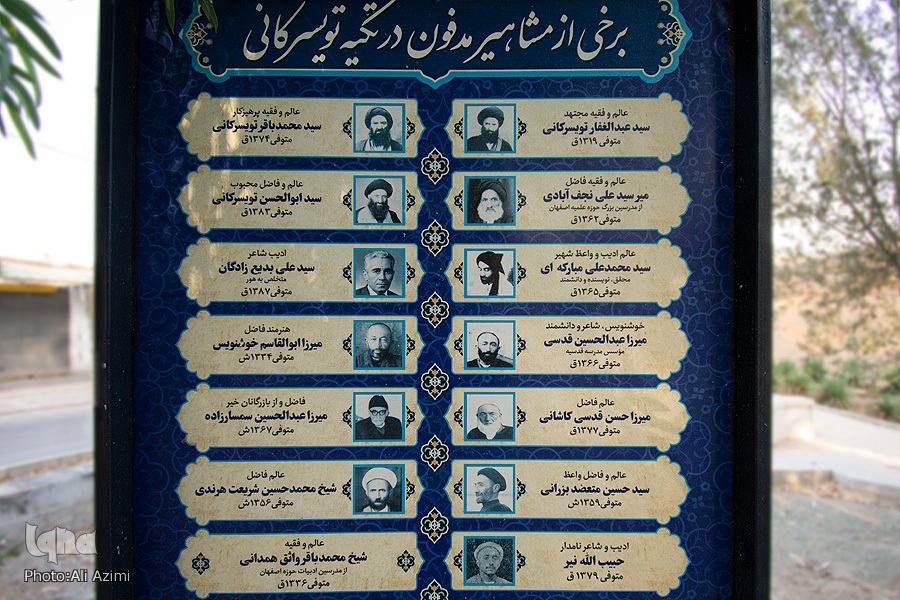 برخی از مشاهیر مدفون در تکیه تویسرکانی
عالم و فقیه مجتهد
سید عبدالغفار تویسرکانی
متوفی ۱۳۱۹ق
عالم و فقیه پرهیزکار
سید محمدباقر تویسرکانی
متوفی ۱۳۷۴ق
عالم و فقیه فاضل
میر سید علی نجف آبادی
از مدرسین بزرگ حوزه علمیه اصفهان
متوفی ۱۳۶۲ق
عالم و فاضل محبوب
سید ابوالحسن تویسرکانی
متوفی ۱۳۸۳ق
عالم ادیب و واعظ شهیر
سید محمدعلی مبارکه ای
محقق، نویسنده و دانشمند
متوفی ۱۳۶۵ق
ادیب شاعر
سید علی بدیع زادگان
متخلص به هور
متوفی ۱۳۸۷ق
خوشنویس، شاعر و دانشمند
میرزا عبدالحسین قدسی
مؤسس مدرسه قدسیه
متوفی ۱۳۶۶ق
هنرمند فاضل
میرزا ابوالقاسم خوشنویس
متوفی ۱۳۳۴ش
عالم فاضل
میرزا حسن قدسی کاشانی
متوفی ۱۳۷۷ق
فاضل و از بازرگانان خیر
میرزا عبدالحسین سمسارزاده
متوفی ۱۳۶۷ش
عالم و فاضل واعظ
سید حسین متعضد بزرانی
متوفی ۱۳۵۹ش
عالم فاضل
شیخ محمدحسین شریعت هرندی
متوفی ۱۳۵۶ش
ادیب و شاعر نامدار
حبیب الله نیر
متوفی ۱۳۷۹ ق
عالم و فقیه
شیخ محمدباقر واثق همدانی
از مدرسین ادبیات حوزه اصفهان
متوفی ۱۳۳۶ق
iqna
Photo:Ali Azimi